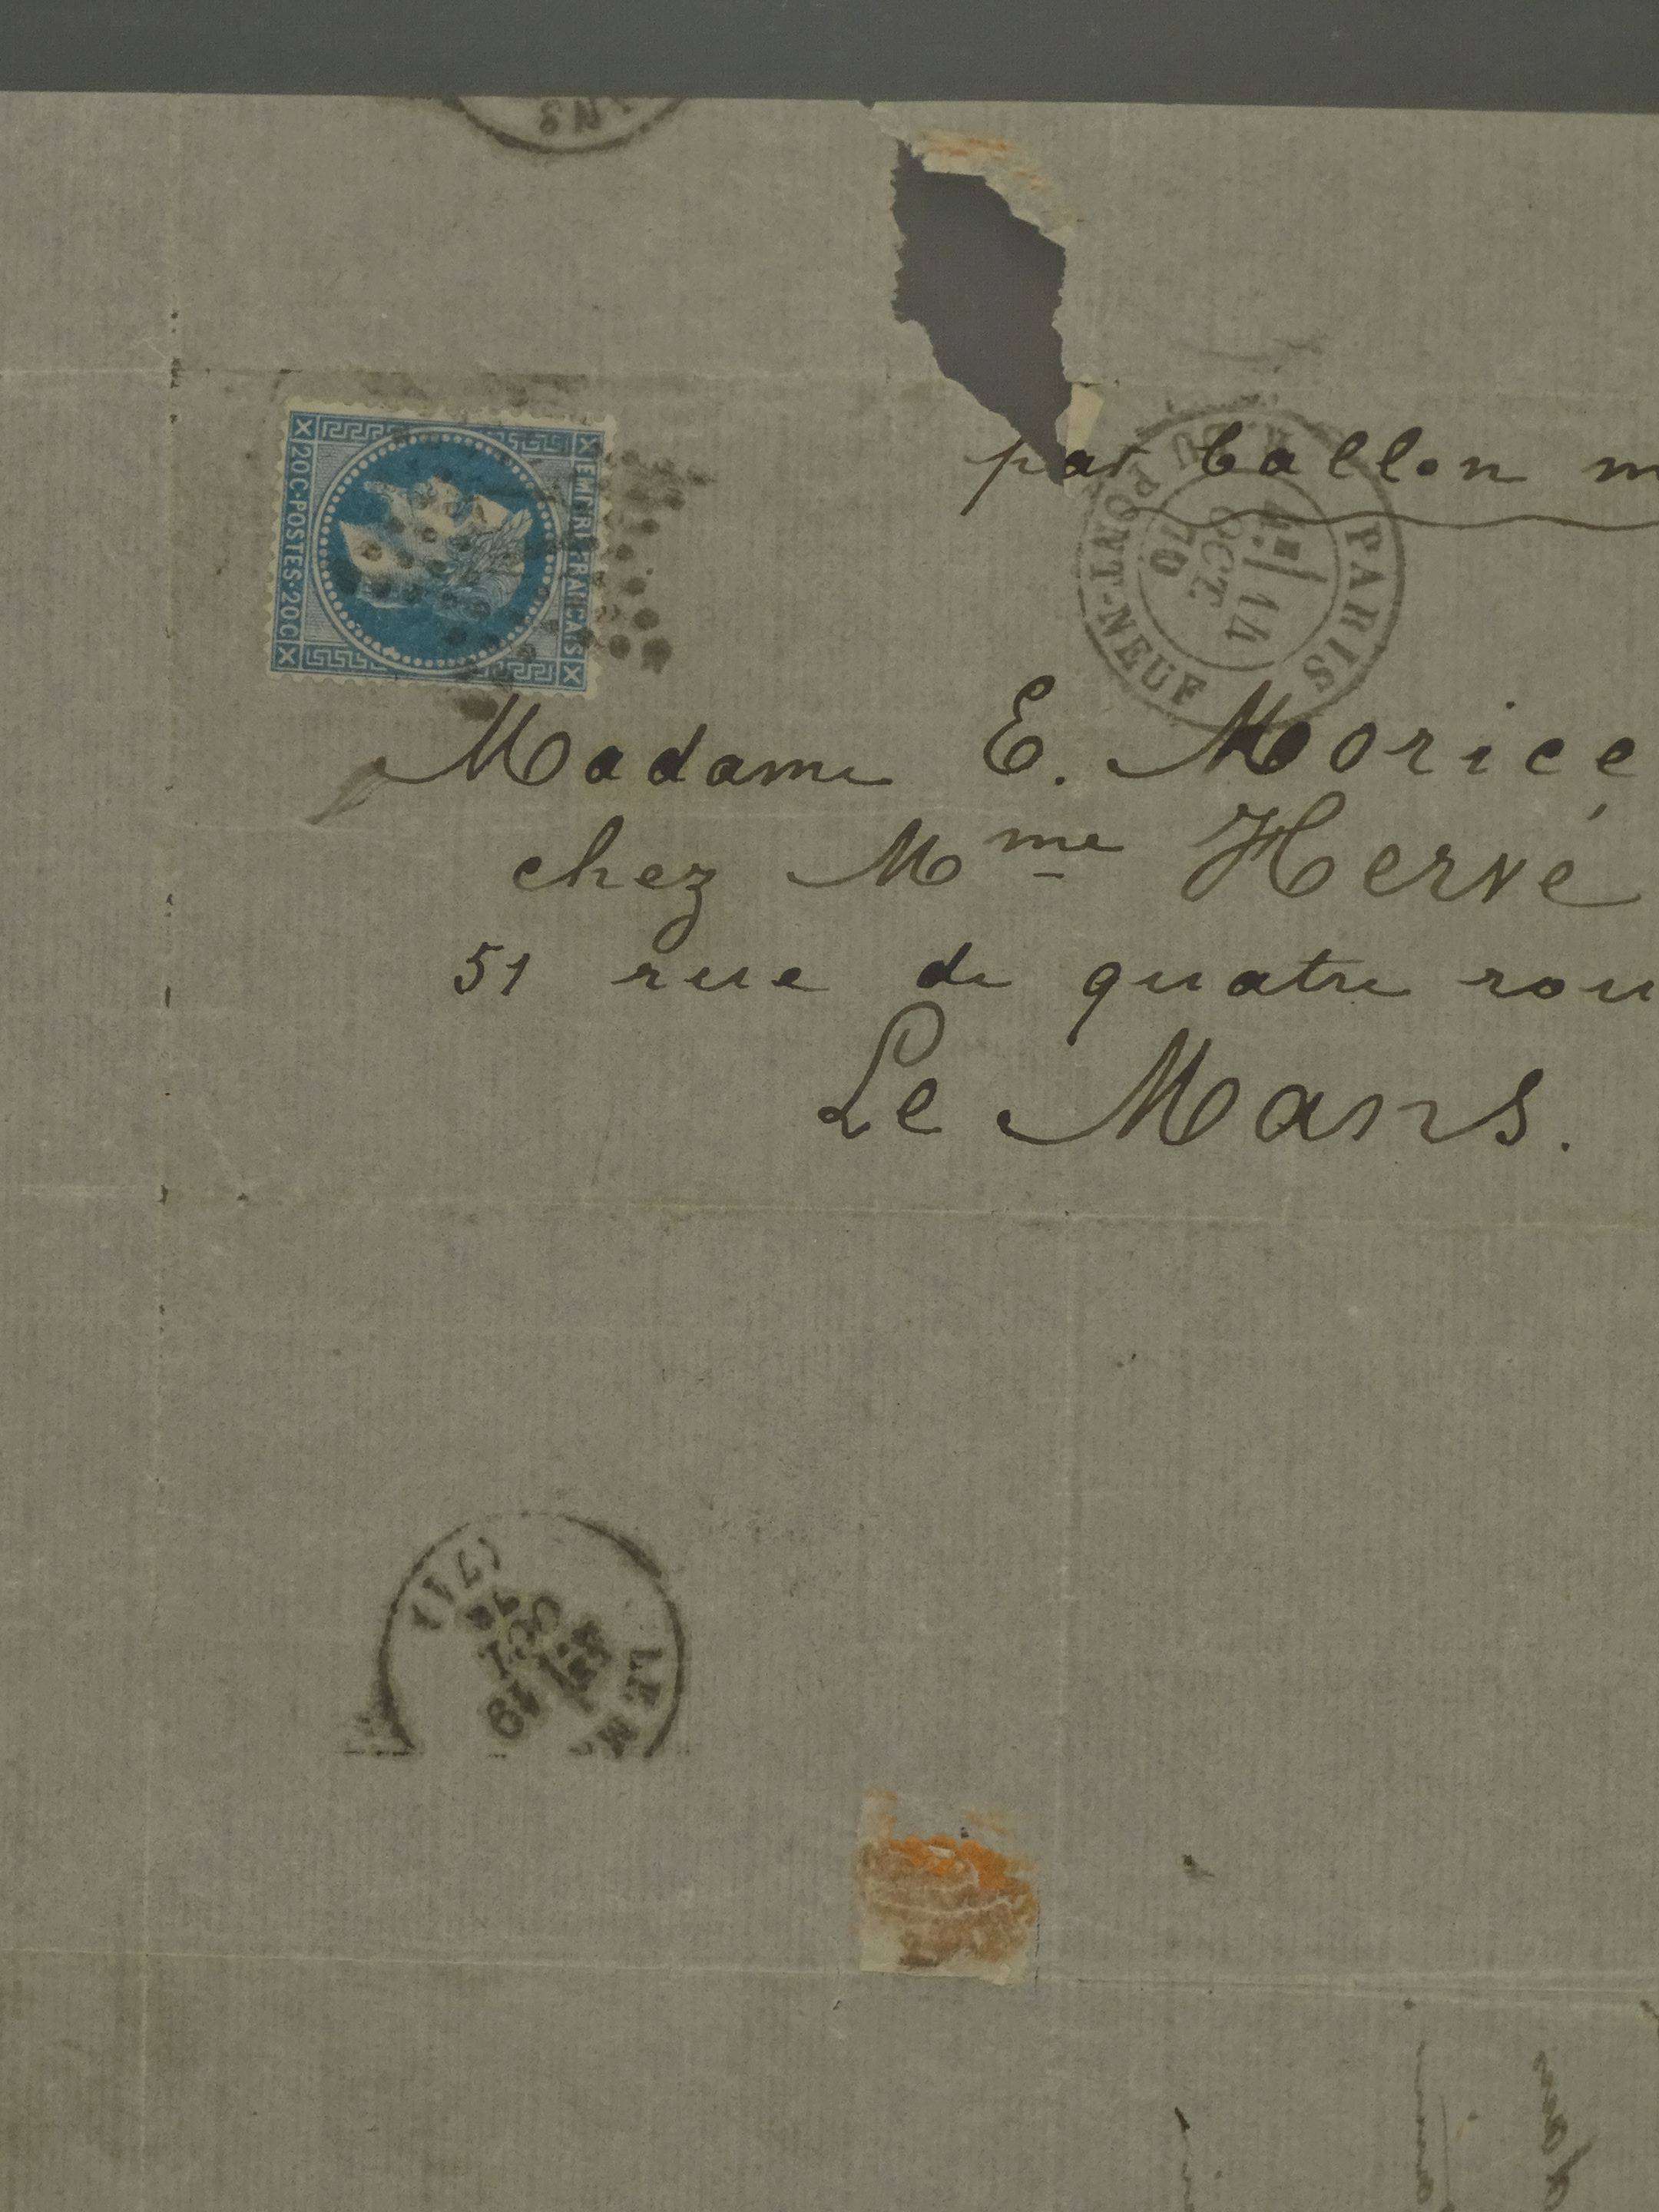 ANS
EMPIRE FRANÇAIS
20C·POSTES·20C
par ballon m
PARIS
R. DU PONT-NEUF
4E/ 14
OCT.
70
Madame E. Morice,
chez Mme Hervé
51 rue de quatre rou
Le Mans.
LE MA
(71)
19
OCT
70